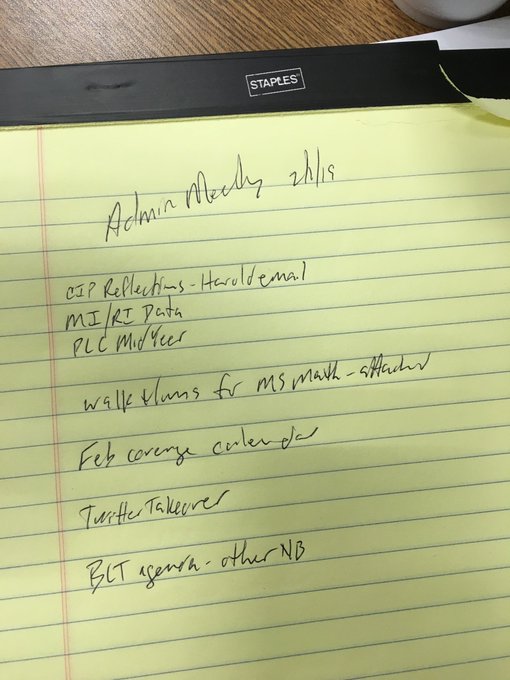 STAPLES
Admin Meeting 2/1/19
CIP Reflections - Harold email
MI/RI Data
PLC Mid Year
walk thrus for MS math - attached
Feb coverage calendar
Twitter Takeover
BLT agenda - other NB